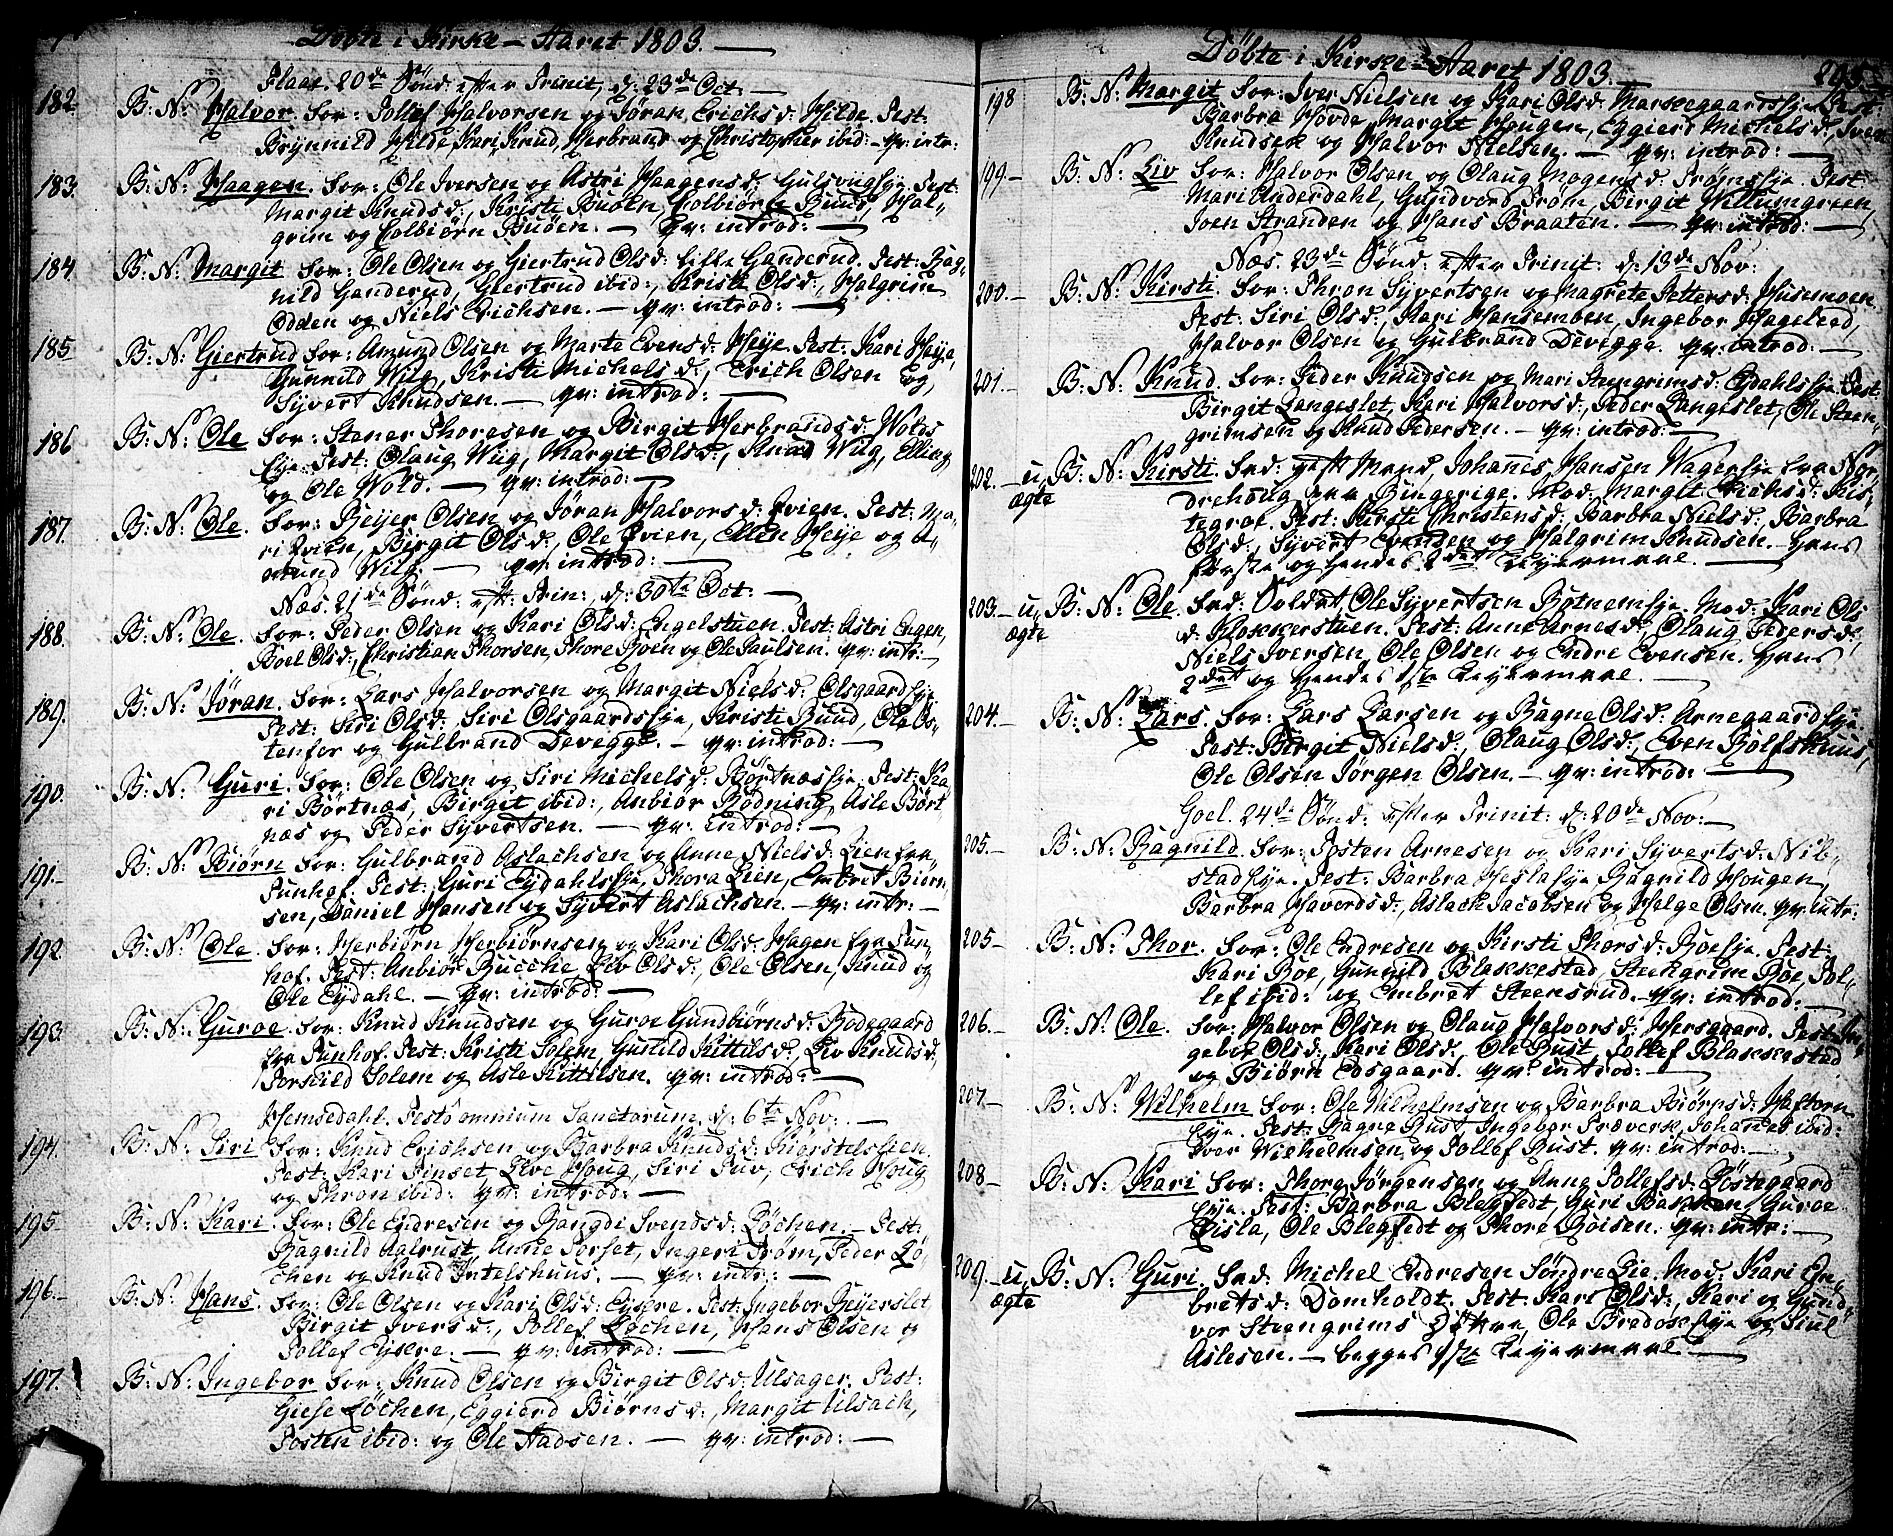 Döbte i Kirke-Aaret 1803.
Flaae. 20de Sönd: efter Trinit, d: 23de Oct:
182. B: N: Halvor. For: Tollef Halvorsen og Jøran Erichsd: Hilde. Test:
Brynnild Hilde, Kari, Knud, Herbrand og Christopher ibid: - qv: intr:
183. B: N: Haagen. For: Ole Iversen og Astri Haagensd: Gulsviigeye. Test:
Margit Knudsd:, Kristi Buöen, Colbiör Buind, Hal-
grim og Colbiörn Buöen. - qv: introd:
184. B: N: Margit for: Ole Olsen og Giertrud Olsd: lille Ganderud. Test: Rag-
nild Ganderud, Giertrud ibid:, Kristi Olsd:, Halgrim
Odden og Niels Erichsen. - qv: introd:
185. B: N: Giertrud for: Amund Olsen og Marte Evensd: Heye. Test: Kari Heye,
Gunnild Wiig, Kristi Michelsd:, Erich Olsen Eg,
Syvert Knudsen. - qv: introd:
186. B: N: Ole for: Stener Thoresen og Birgit Herbrandsd: Wolds
eye. Test: Olaug Wiig, Margit Olsd:, Knud Wiig, Elling
og Ole Wold. - qv: introd:
187. B: N: Ole. for: Reyer Olsen og Jøran Halvorsd: Evien. Test: Ma-
ri Evien, Birgit Olsd:, Ole Evien, Ellen Heye og A-
mund Wiig. - qv: introd:
Næs. 21de Sönd: eft: Trin:, d: 30te Oct:
188. B: N: Ole. for: Peder Olsen og Kari Olsd: Engelstuen. Test: Astri Engen,
Boel Olsd:, Christian Thorsen, Thore Roen og Ole Paulsen. qv: intr:
189. B: N: Jöran. for: Lars Halvorsen og Margit Nielsd: Olsgaardseye
Test: Siri Olsd:, Siri Olsgaardseye, Kristi Rund, Ole Ös-
tenfor og Gulbrand Devegge. - qv: introd:
190. B: N: Guri. for: Ole Olsen og Siri Michelsd: Börtnæseye. Test: Ka-
ri Börtnæs, Birgit ibid:, Anbiör Rödning, Asle Bört-
næs og Peder Syvertsen. - qv: introd:
191. B: N: Biörn for: Gulbrand Aslachsen og Anne Nielsd: Lien fra
Tunhof. Test: Guri Eydahlseye, Thora Lien, Embret Biörn-
sen, Daniel Hansen og Syvert Aslachsen. - qv: intr:
192. B: N: Ole. for: Herbiörn Herbiörnsen og Kari Olsd: Hagen fra Tun-
hof. Test: Anbiör Rucche, Liv Olsd:, Ole Olsen, Knud og
Ole Eydahl. - qv: introd:
193. B: N: Guroe. for: Knud Knudsen og Guroe Gundbiörnsd: Bodegaard
fra Tunhof. Test: Kristi Solem, Gunild Kittilsd:, Liv Knudsd:,
Torskild Solem og Asle Kittilsen. qv: introd:
Hemsedahl. Festo omnium Sanctorum, d: 6te Nov:
194. B: N: Siri for: Knud Erichsen og Barbra Knudsd: Kiörstelslien.
Test: Kari Finset, Live Houg, Siri Tuv, Erich Houg
og Thron ibid: qv: introd:
195. B: N: Kari. for: Ole Endresen og Rangdi Svendsd: Löchen. - Test:
Ragnild Aalrust, Anne Torset, Ingeri Tröm, Peder Lö-
chen og Knud Intelshuus. - qv: intr:
196. B: N: Hans. for: Ole Olsen og Kari Olsd: Eysere. Test: Ingebor Reyerslet,
Birgit Iversd:, Tollef Löchen, Hans Olsen og
Tollef Eysere. - qv: introd:
197. B: N: Ingebor for: Knud Olsen og Birgit Olsd: Ulsager. Test:
Giese Löchen, Eggierd Biörnsd:, Margit Ulsach,
Tosten ibid: og Ole Aadsen. - qv: introd:
Döbte i Kirke-Aaret 1803. 295.
198 B: N: Margit for: Iver Nielsen og Kari Olsd: Markegaardseye. Test:
Barbra Hovde, Margit Hougen, Eggierd Michelsd:, Svend
Knudsen og Halvor Nielsen. - qv: introd:
199. B: N: Liv for: Halvor Olsen og Olaug Mogensd: Trömseye. Test:
Mari Anderdahl, Gundvord Tröm, Birgit Willumgreen,
Joen Stranden og Hans Braaten. - qv: introd:
Næs. 23de Sönd: efter Trinit: d: 13de Nov:
200. B: N: Kirsti. for: Thron Syvertsen og Magrete Pettersd: Husemoen
Test: Siri Olsd:, Kari Hansemoen, Ingebor Hageleed,
Halvor Olsen og Gulbrand Devegge. qv: introd:
201. B: N: Knud. for: Peder Knudsen og Mari Steengrimsd: Eydahlseye. Test:
Birgit Langeslet, Kari Halvorsd:, Peder Langeslet, Ole Steen-
grimsen og Knud Pedersen. - qv: introd:
202. u, ægte B: N: Kirsti. Fad: gift Mand, Johanes Hansen Wagerseye fra Nor-
drehoug paa Ringerige. Mod: Margit Erichsd: Kis-
tegrav. Test: Kirsti Christensd:, Barbra Nielsd:, Barbra
Olsd:, Syvert Evensen og Halgrim Knudsen. - Hans
første og hendes 2det Leyermaal.
203. u, ægte B: N: Ole. Fad: Soldat, Ole Syvertsen Botnemseye. Mod: Kari Ols
d: Klokkerstuen. Test: Anne Arnesd:, Olaug Pedersd:,
Niels Iversen, Ole Olsen og Endre Evensen. Hans
2det og hendes 1ste Leyermaal.
204. B: N: Lars. for: Lars Larsen og Ragne Olsd: Arnegaardseye
Test: Birgit Nielsd:, Olaug Olsd:, Even Rolfshuus,
Ole Olsen Jörgen Olsen. - qv: introd:
Goel. 24de Sönd: efter Trinit: d: 20de Nov:
205. B: N: Ragnild. for: Tosten Arnesen og Kari Syvertsd: Nib-
stadeye. Test: Barbra Heslaeye, Ragnild Hougen,
Barbra Haverdsd:, Aslach Jacobsen og Helge Olsen. qv: intr:
205 B: N: Thor. for: Ole Endresen og Kirsti Thorsd: Roeeye. Test:
Kari Roe, Gunvild Blakkestad, Steengrim Roe, Tol-
lef ibid: og Embret Steensrud. qv: introd:
206. B: N: Ole. for: Halvor Olsen og Olaug Halvorsd: Hersgaard. Test: In-
gebor Olsd:, Kari Olsd:, Ole Rust, Tollef Blakkestad
og Biörn Eosgaard. qv: introd:
207. B: N: Wilhelm for: Ole Wilhelmsen og Barbra Biörnsd: Haftorn
eye. Test: Ragne Rust, Ingebor Præversk, Johanes ibid:
Iver Wielhelmsen og Tollef Rust. qv: introd:
208 B: N: Kari for: Thore Jörgensen og Anne Tollefsd: Löstegaard
eye. Test: Barbra Blegfedt, Guri Bakken, Guroe
Lisla, Ole Blegfedt og Thore Roisen. qv: intr:
209. u, ægte B: N: Guri. Fad: Michel Endresen Söndre Lie. Mod: Kari Em-
bretsd: Domholdt. Test: Kari Olsd:, Kari og Gund-
vor Steengrims Dötre, Ole Bradokeye og Siul
Aslesen. - begges 1ste Leyermaal.